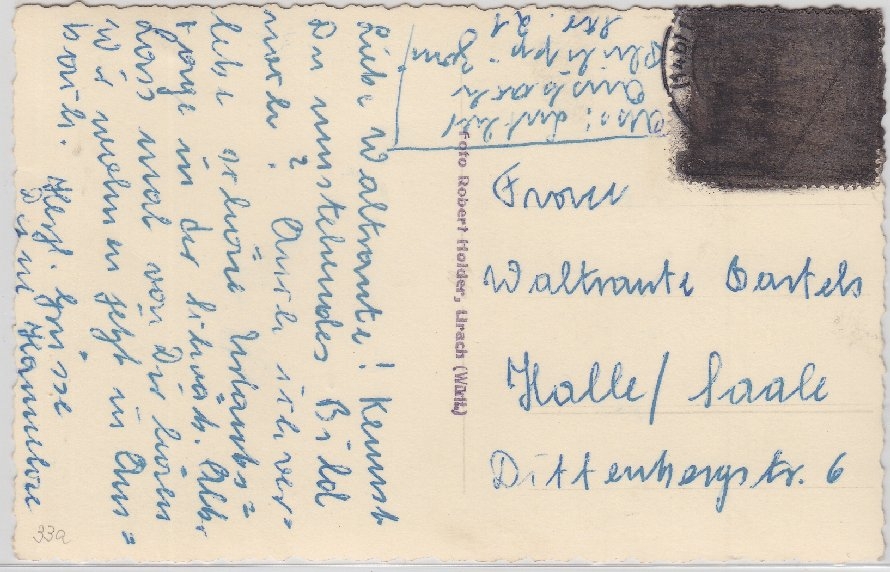 Liebe Waltraute! Kennst
Du umstehendes Bild
? Auch ich ver=
lebe schöne Urlaubs=
tage in der Schwäb. Alb.
Lass mal von Dir hören
Wir wohnen jetzt in Ans=
bach. Herzl. Grüsse
Deine Hannelore
Abs:
Ansbach
Str. 21
Foto Robert Holder, Urach (Württ.)
Frau
Waltraute Bartels
Halle/Saale
Dittenbergstr. 6
33a